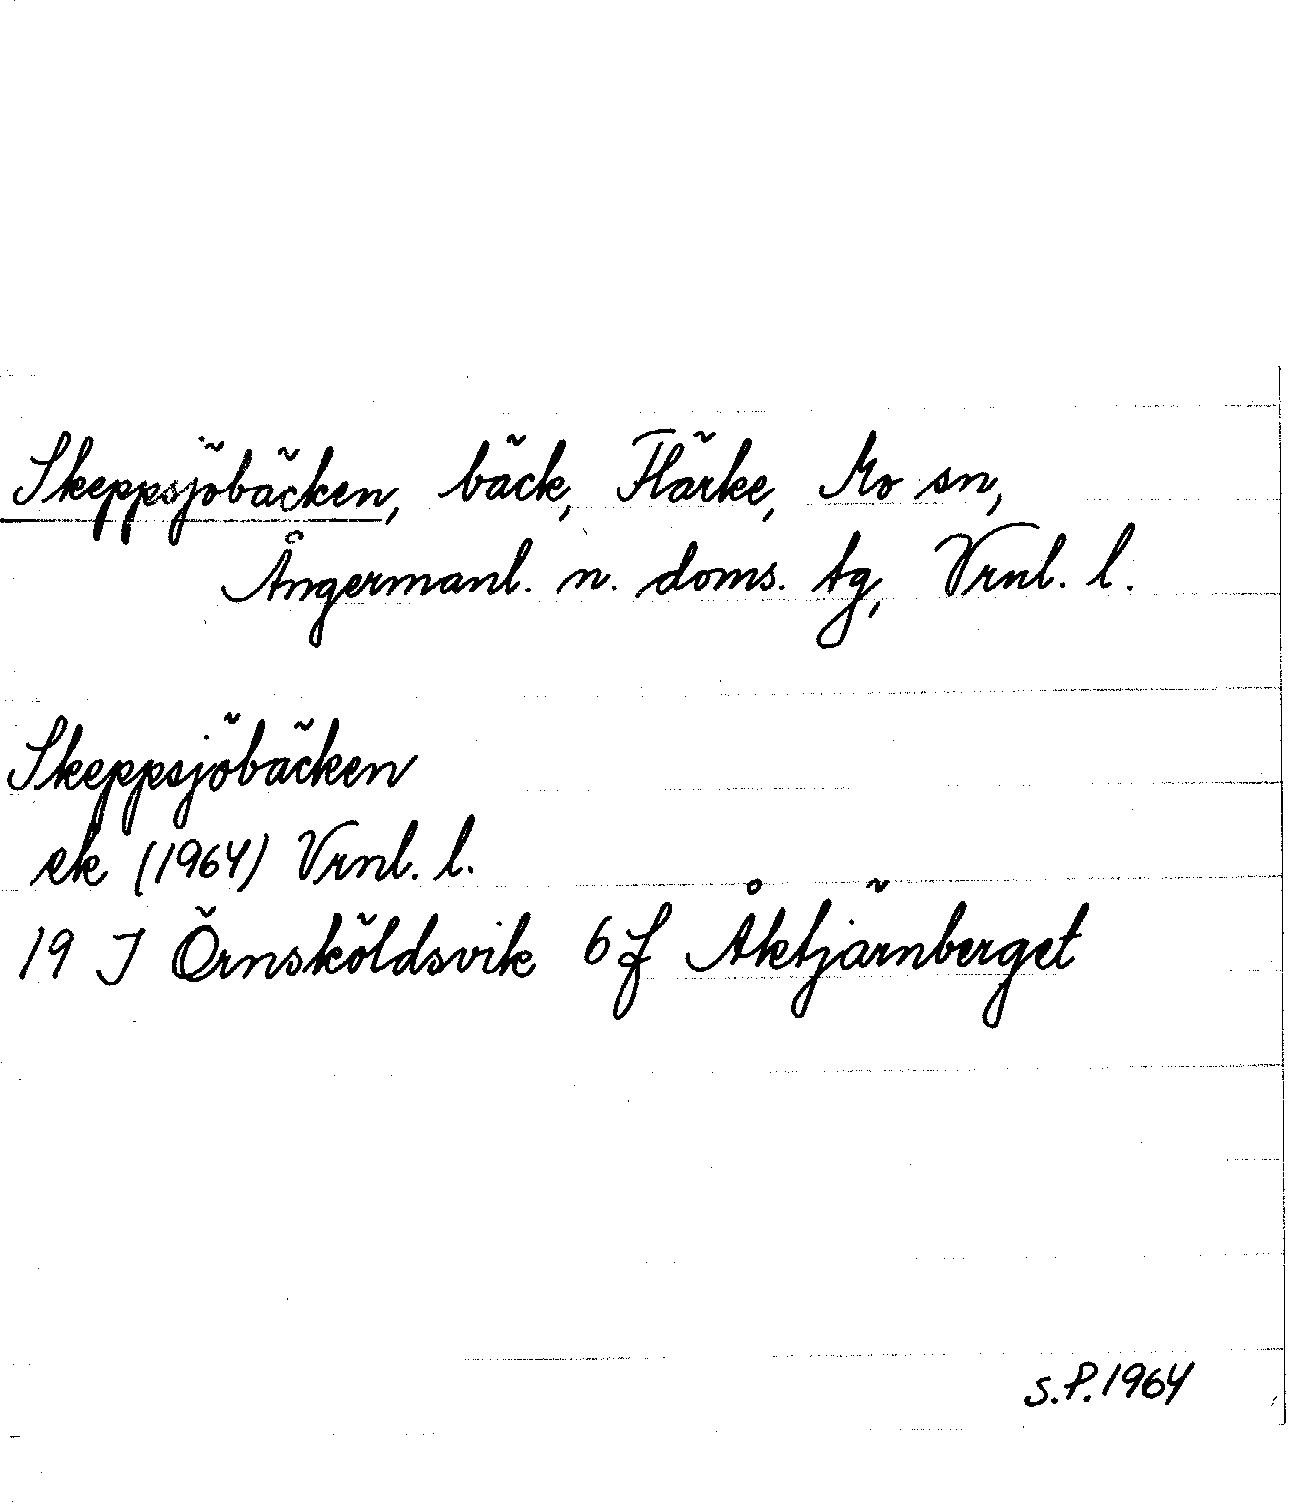 Skeppsjöbäcken, bäck, Flärke, Mo sn,
Ångermanl. n. doms. tg, Vrnl. l.
Skeppsjöbäcken
ek (1964) Vrnl. l.
19 J Örnsköldsvik 6 f Åktjärnberget
S.P.1964